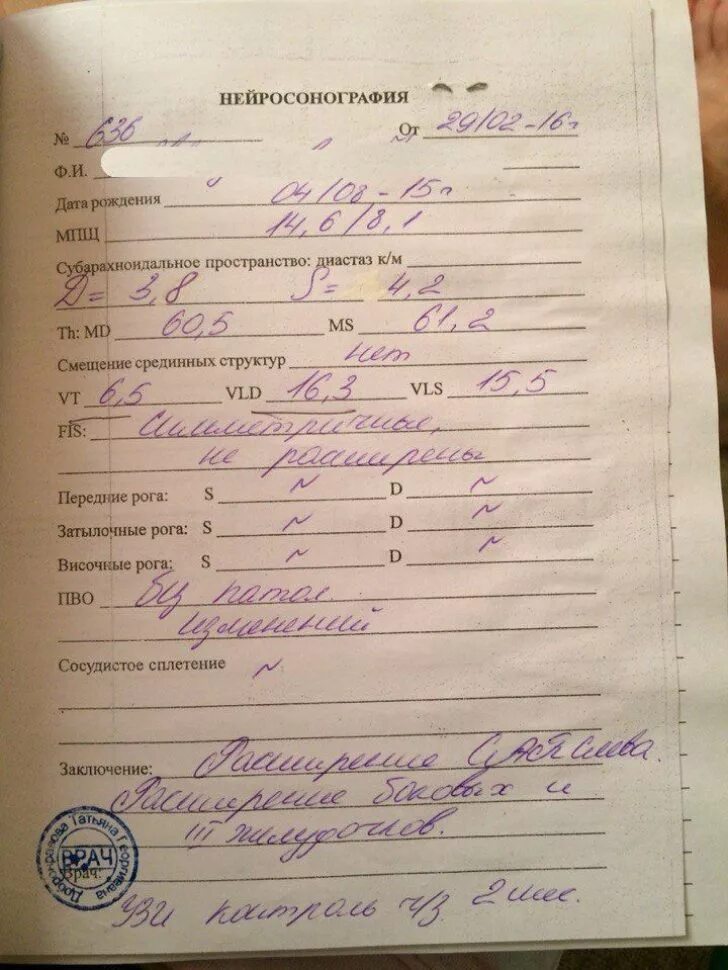 НЕЙРОСОНОГРАФИЯ
№ 636 От 29/02-16г
Ф.И.
Дата рождения 04/08-15г
МПЩ 14,6/8,1
Субарахноидальное пространство: диастаз к/м
D= 3,8 S= 4,2
Th: MD 60,5 MS 61,2
Смещение срединных структур нет
VT 6,5 VLD 16,3 VLS 15,5
FIS: симметричные,
не расширены
Передние рога: S ~ D ~
Затылочные рога: S ~ D ~
Височные рога; S ~ D ~
ПВО без патол.
изменений
Сосудистое сплетение ~
Заключение: Расширение САП слева.
Расширение боковых и
III желудочков.
Татьяна Георгиевна
ВРАЧ
Врач:
УЗИ контроль ч/з 2 мес.